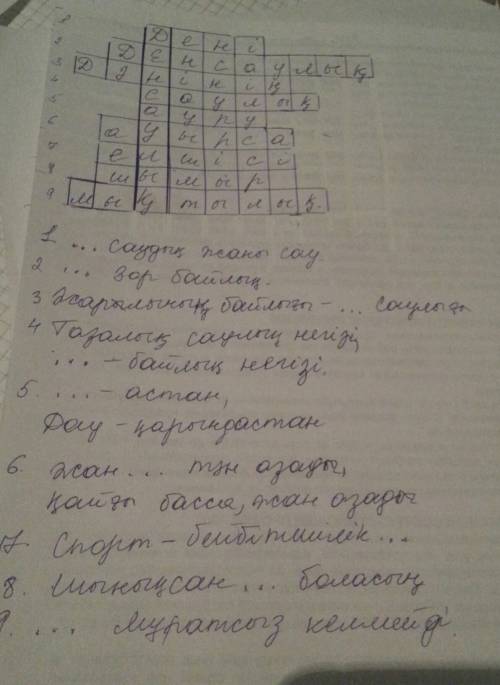 1 Дені
2 Денсаулық
3 Денінің
4 саулық
5 ауру
6 ауырса
7 елшісі
8 шымыр
9 мықтылық
1 ... саудың жаны сау
2 ... зор байлық.
3 Жарылының байлығы - ... саулығы
4 Тазалық саулық негізі,
... - байлық негізі.
5. ... - астан,
Дау - қарындастан
6. Жан ... тән азады,
Қайғы басса, жан азады
7. Спорт - бейбітшілік ...
8. Шынықсаң ... боласың
9. ... мұратсыз келмейді.